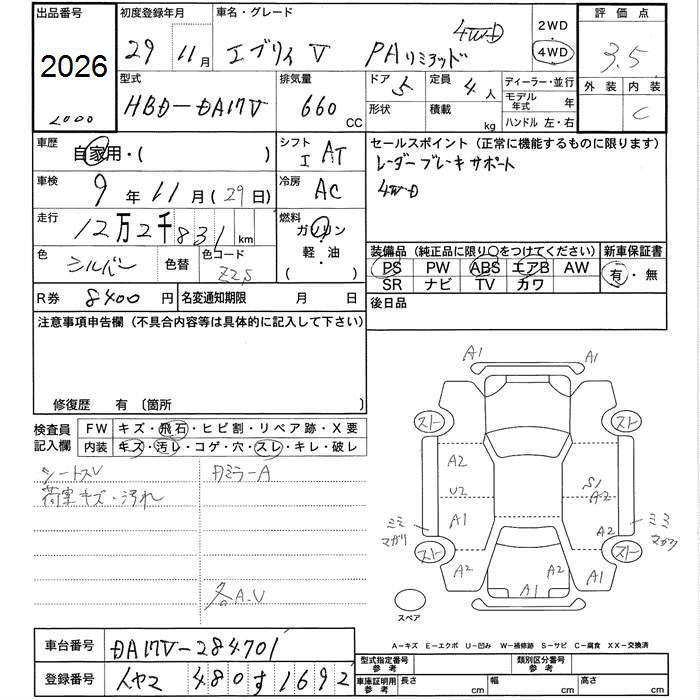 出品番号
2026
2000
初度登録年月
29 11月
車名・グレード
エブリィV PAリミテッド 4WD
2WD
4WD
評価点
3.5
外装 内装
C
型式
HBD-DA17V
排気量
660 CC
ドア 5
形状
定員 4人
積載 kg
ディーラー・並行
モデル年式 年
ハンドル 左・右
車歴
自家用・( )
シフト
I AT
車検
9年11月(29日)
冷房
AC
走行
12万2千831 km
燃料
ガソリン
軽・油
( )
色
シルバー
色替
色コード
Z2S
R券 8400円
名変通知期限 月 日
セールスポイント(正常に機能するものに限ります)
レーダーブレーキサポート
4WD
装備品(純正品に限り○をつけてください)
PS PW ABS エアB AW
SR ナビ TV カワ
新車保証書
有・無
後日品
注意事項申告欄(不具合内容等は具体的に記入して下さい)
修復歴 有 〔箇所 〕
検査員記入欄
FW キズ・飛石・ヒビ割・リペア跡・X要
内装 キズ・汚レ・コゲ・穴・スレ・キレ・破レ
シートスV
荷室キズ・汚れ
ミラーA
各A.U
A1 A1
スト スト
A2
U2
A1
S1
A2
A2
ミミマガリ
ミミマガリ
スト スト
A2 A1 A2 A1
スペア
A-キズ E-エクボ U-凹み W-補修跡 S-サビ C-腐食 XX-交換済
車台番号 DA17V-284701
登録番号 480す1692
型式指定番号参考
類別区分番号参考
車庫証明用参考 長さ cm 幅 cm 高さ cm